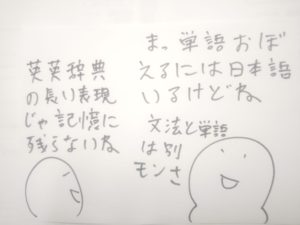 英英辞典
の長い表現
じゃ記憶に
残らないね
まっ単語おぼ
えるには日本語
いるけどね
文法と単語
は別
モンさ